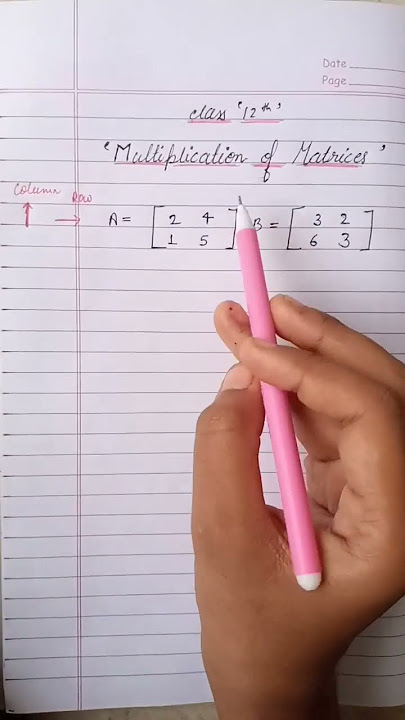 Date
Page
class '12th'
'Multiplication of Matrices'
Column
Row
A = [ 2 4 ] B = [ 3 2 ]
1 5 6 3